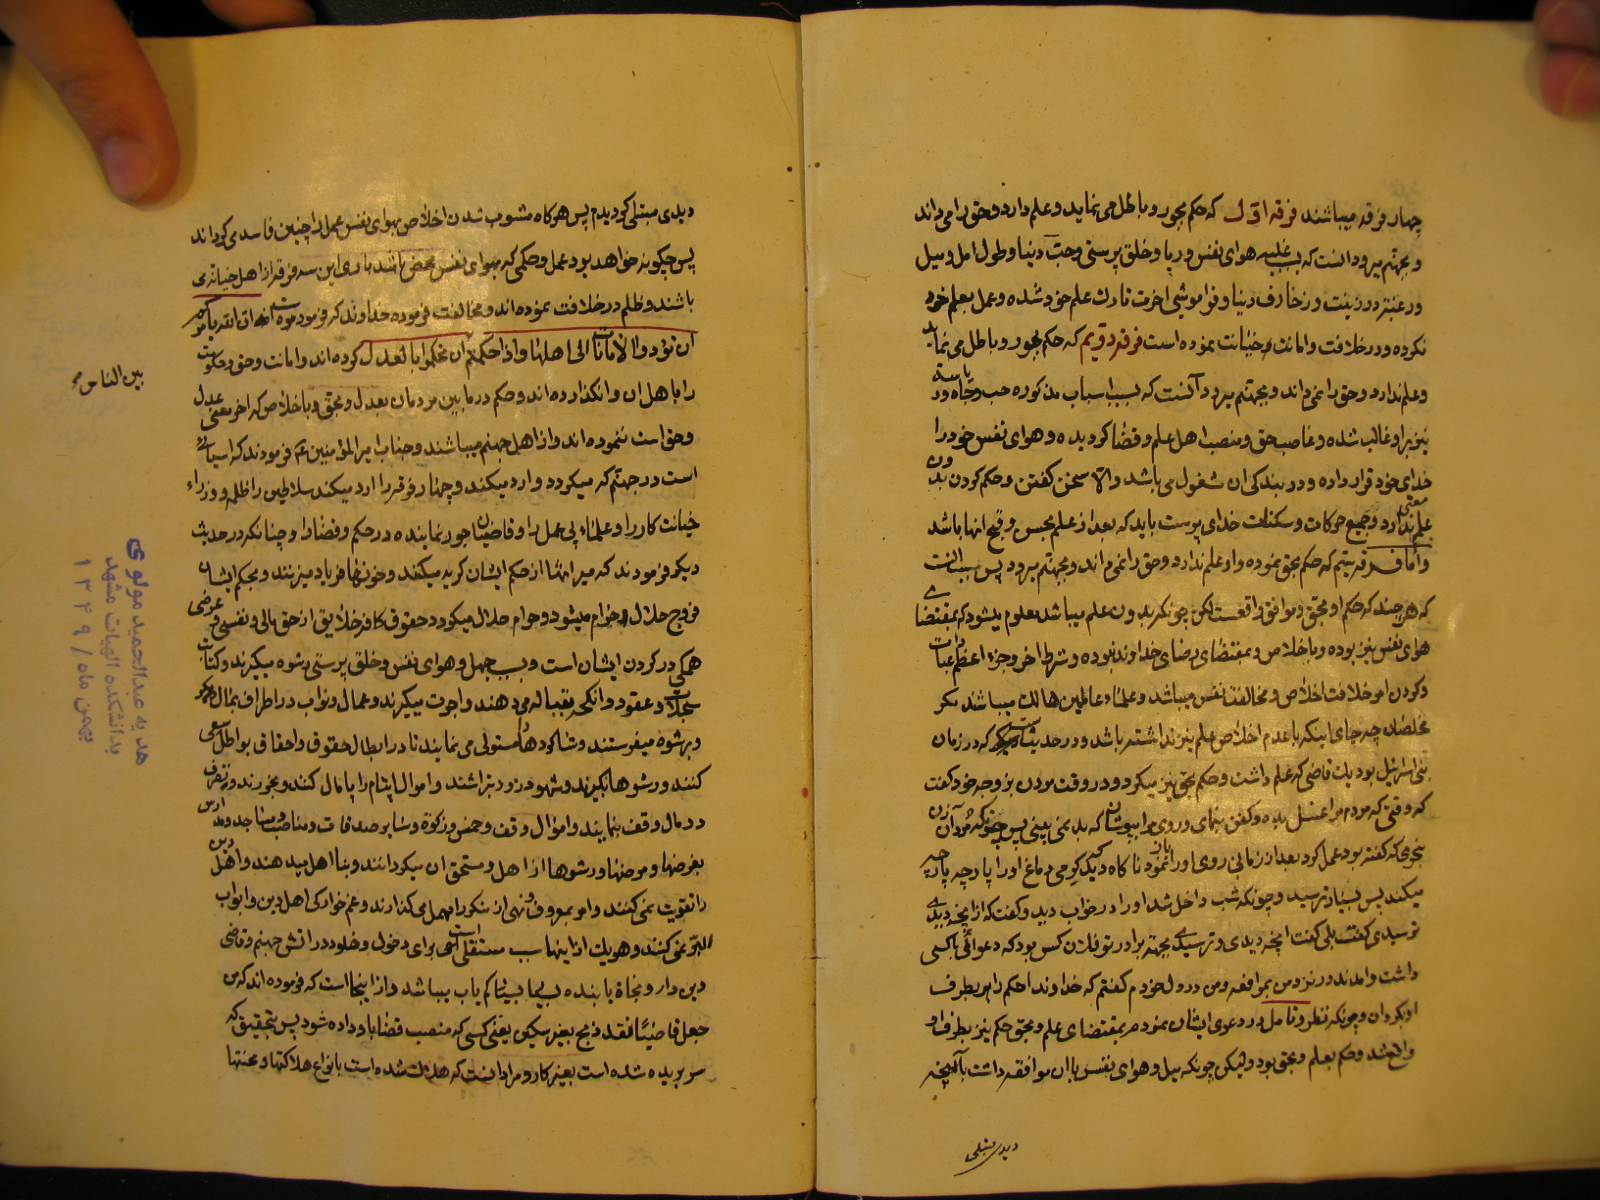 چهار فرقه میباشند فرقه اوّل که حکم بجور و باطل می نماید و علم دارد و حق را می داند
و بجهنّم میرود و آنست که بسبب غلبه هوای نفس و ریا و خلق پرستی و حبّ دنیا و طول امل و میل
و رغبت در زینت و زخارف دنیا و فراموشی اخرت تارک علم خود شده و عمل بعلم خود
نکرده و در خلافت و امانت خیانت نموده است فرقه دویم که حکم بجور و باطل می نماید
و علم ندارد و حق را نمی داند و بجهنّم میرود و آنست که بسبب اسباب مذکوره حب و جاه و ریاسة
نیز بر او غالب شده و غاصب حق و منصب اهل علم و قضا کردیده و هوای نفس خود را
خدای خود قرار داده و در بندکی ان مشغول می باشد و الّا سخن کفتن و حکم کردن بدون
علم معنی ندارد و جمیع حرکات و سکنات خدای پرست باید که بعد از علم بحسن و قبح انها باشد
و امّا فرقه سیّم که حکم بحق نموده و او علم ندارد و حق را نمی داند و بجهنّم میرود پس بسبب آنست
که هر چند که حکم او بحق و موافق واقعست لکن چونکه بدون علم میباشد معلوم میشود که بمقتضای
هوای نفس نیز بوده و با خلاص و بمقتضای رضای خداوند نبوده و شرط اخر و جزء اعظم عبادات
و کردن امر خلافت اخلاص و مخالفت نفس میباشد و علما و عالمین هالک میباشند مکر
مخلصان چه جای اینکه با عدم اخلاص علم نیز نداشته باشد و در حدیث است که در زمان
بنی اسرائیل بود یک قاضی که علم داشت و حکم بحق نیز میکرد و در وقت مردن بزوجه خود کفت
که وقتی که مردم مرا غسل بده و کفن بنمای و روی مرا بپوشان که بد نمی بینی پس چونکه مرد آن زن
بنحوی که کفته بود عمل کرد بعد از زمانی روی او را باز نمود ناکاه دید که کرمی دماغ او را پارچه پارچه
میکند پس بسیار ترسید و چونکه شب داخل شد او را در خواب دید و کفت که از انچه دیدی
ترسیدی کفت بلی کفت انچه دیدی و ترسیدی بجهة برادر تو فلان کس بود که دعوائی با کسی
داشت و امدند در نزد من بمرافعه و من در دل خودم کفتم که خداوندا حکم را بر طرف
او بکردان و چونکه نظر و تامل در دعوی ایشان نمودم بمقتضای علم و بحق حکم نیز بطرف او
واقع شد و حکم بعلم و بحق بود و لیکن چونکه میل و هوای نفس با ان موافقه داشت بآنچه
دیدی مبتلی
دیدی مبتلی کردیدم پس هرکاه مشوب شدن اخلاص بهوای نفس عمل را چنین فاسد می کرداند
پس چکونه خواهد بود عمل و حکمی که بهوای نفس محض باشد باری این سه فرقه از اهل خیانة می
باشند و ظلم در خلافت نموده اند و مخالفت فرموده خداوند که فرموده است ان الله یامرکم
ان تؤدوا الامانات الی اهلها و اذا حکمتم ان تحکموا بالعدل کرده اند و امانت و حق و حکومت
بین الناس صح
را با هل ان وانکذارده اند و حکم در مابین مردمان بعدل و بحق و با خلاص که اخر معنی عدل
و حق است ننموده اند و از اهل جهنم میباشند و جناب امیر المؤمنین ع فرمودند که اسیائی
است در جهنّم که میکردد و ارد میکند و چهار فرقه را ارد میکند سلاطین را ظلم و وزراء
خیانت کار را و علماء بی عمل را و قاضیان جور نماینده در حکم و قضا را و چنانکه در حدیث
دیکر فرمودند که میراثها از حکم ایشان کریه میکنند و خونها فریاد میزنند و بحکم ایشان
فروج حلال حرام میشود و حرام حلال میکردد و حقوق کافه خلایق از حق مالی و نفسی و عرضی
همکی در کردن ایشان است و بسبب جهل و هوای نفس و خلق پرستی رشوه میکیرند و کتابت
سجلات و عقود و انکحه بقباله می دهند و اجرت میکیرند و عمال و نواب در اطراف
و برشوه میفرستند و شاکردها را مستولی می نمایند تا در ابطال حقوق و احقاق بواطل سعی
کنند و رشوها بکیرند و شهود زور بتراشند و اموال ایتام را پامال کنند و بخورند و تصرف
در مال وقف بنمایند و اموال وقف و خمس و زکوة و سایر صدقات و مناصب و مساجد و مدارس
بغرضها و مرضها و رشوها از اهل و مستحق ان میکردانند و بنا اهل میدهند و اهل دین
را تقویت نمی کنند و امر بمعروف و نهی از منکر را مهمل می کذارند و غم خوارکی اهل دین و ابواب
البرّ نمی کنند و هر یک از اینها سبب مستقلی است برای دخول و خلود در اتش جهنم و قاضی
دین دار و نجاة یابنده بسیار کم یاب میباشد و از اینجا است که فرموده اند که من
جعل قاضیًا فقد ذبح بغیر سکین یعنی کسی که منصب قضا باو داده شود پس بتحقیق که
سر بریده شده است بغیر کارد و مراد آنست که هلاک شده است بانواع هلاکتها و محنتها
هدیه عبدالحمید مولوی
بدانشکده الهیات مشهد
بهمن ماه / ۱۳۴۹